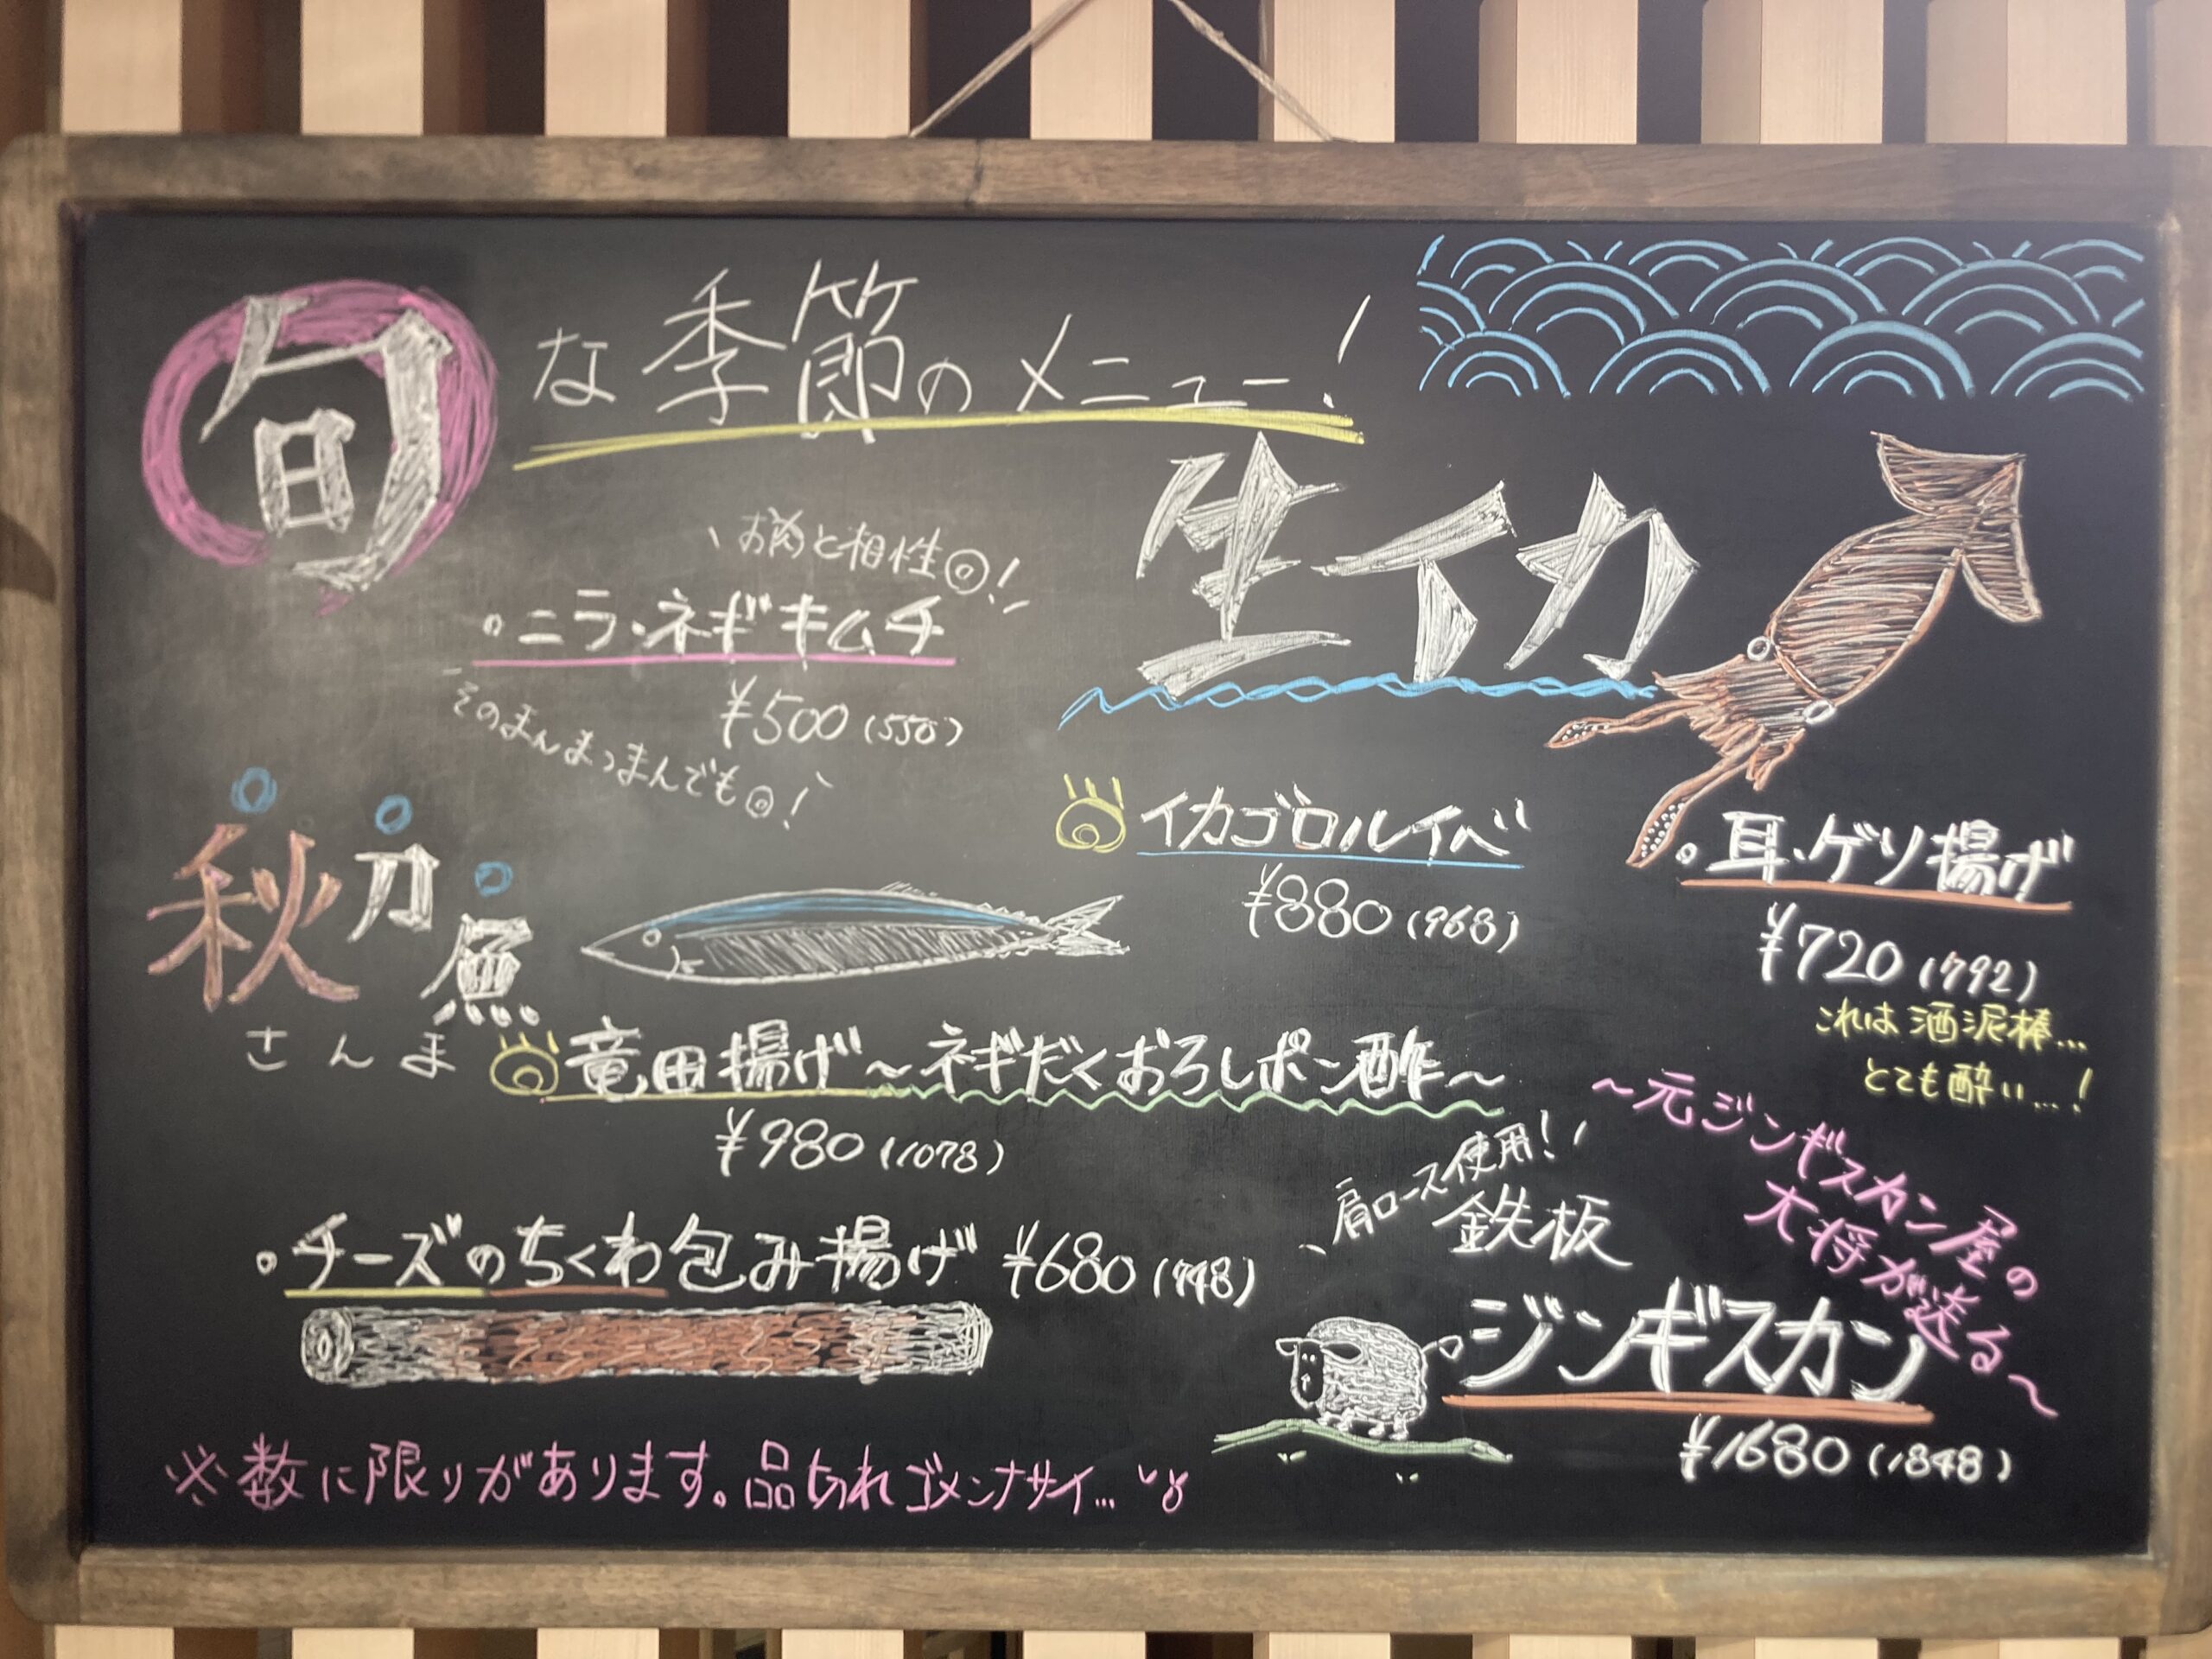 旬な季節のメニュー!
お肉と相性◎!
・ニラ・ネギキムチ
¥500(550)
そのまんまつまんでも◎!
生イカ
イカゴロルイベ
¥880(968)
・耳・ゲソ揚げ
¥720(792)
これは酒泥棒…
とても酔い…!
秋刀魚
さんま
竜田揚げ〜ネギだくおろしポン酢〜
¥980(1078)
・チーズのちくわ包み揚げ ¥680(748)
〜元ジンギスカン屋の
大将が送る〜
肩ロース使用!
鉄板
ジンギスカン
¥1680(1848)
※数に限りがあります。品切れゴメンナサイ…